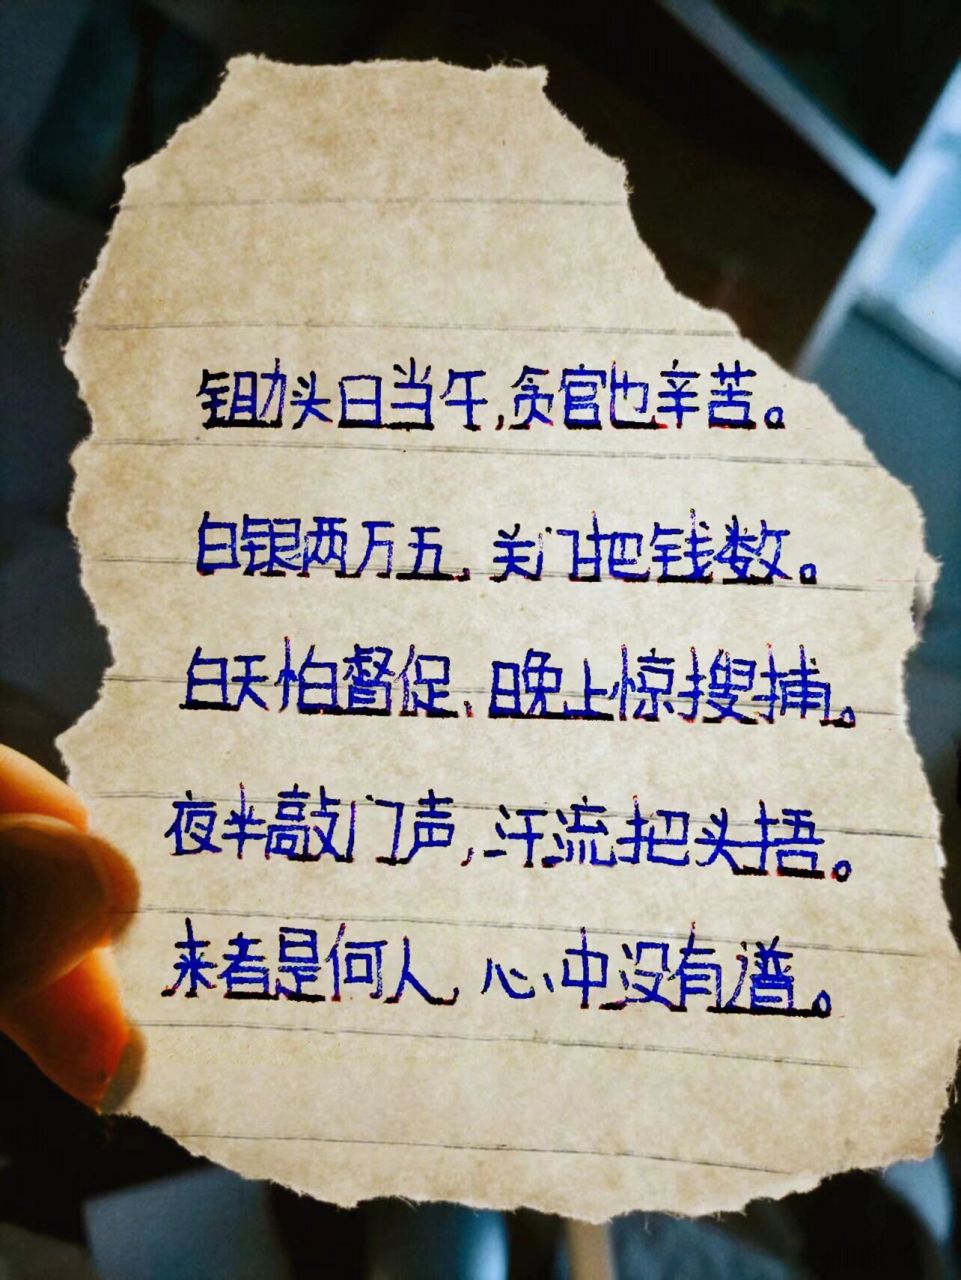 锄头日当午,贪官也辛苦。
白银两万五,关门把钱数。
白天怕督促,晚上惊搜捕。
夜半敲门声,汗流把头捂。
来者是何人,心中没有谱。